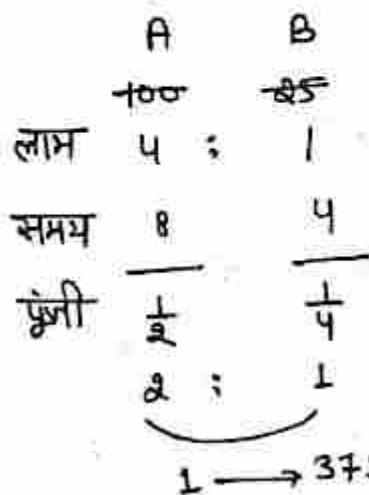 A B
100 25
लाभ 4 : 1
समय 8 4
पूंजी 1/2 1/4
2 : 1
1 → 37